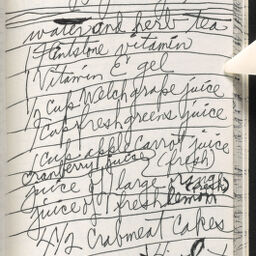 water and herb tea
Flintstone vitamin
1 Vitamin E gel
1/2 cup Welch grape juice
1 cup fresh greens juice
1 cup apple carrot juice
cranberry juice (fresh)
juice of 1 large orange
juice of 1 fresh lemon
4 1/2 Crabmeat Cakes